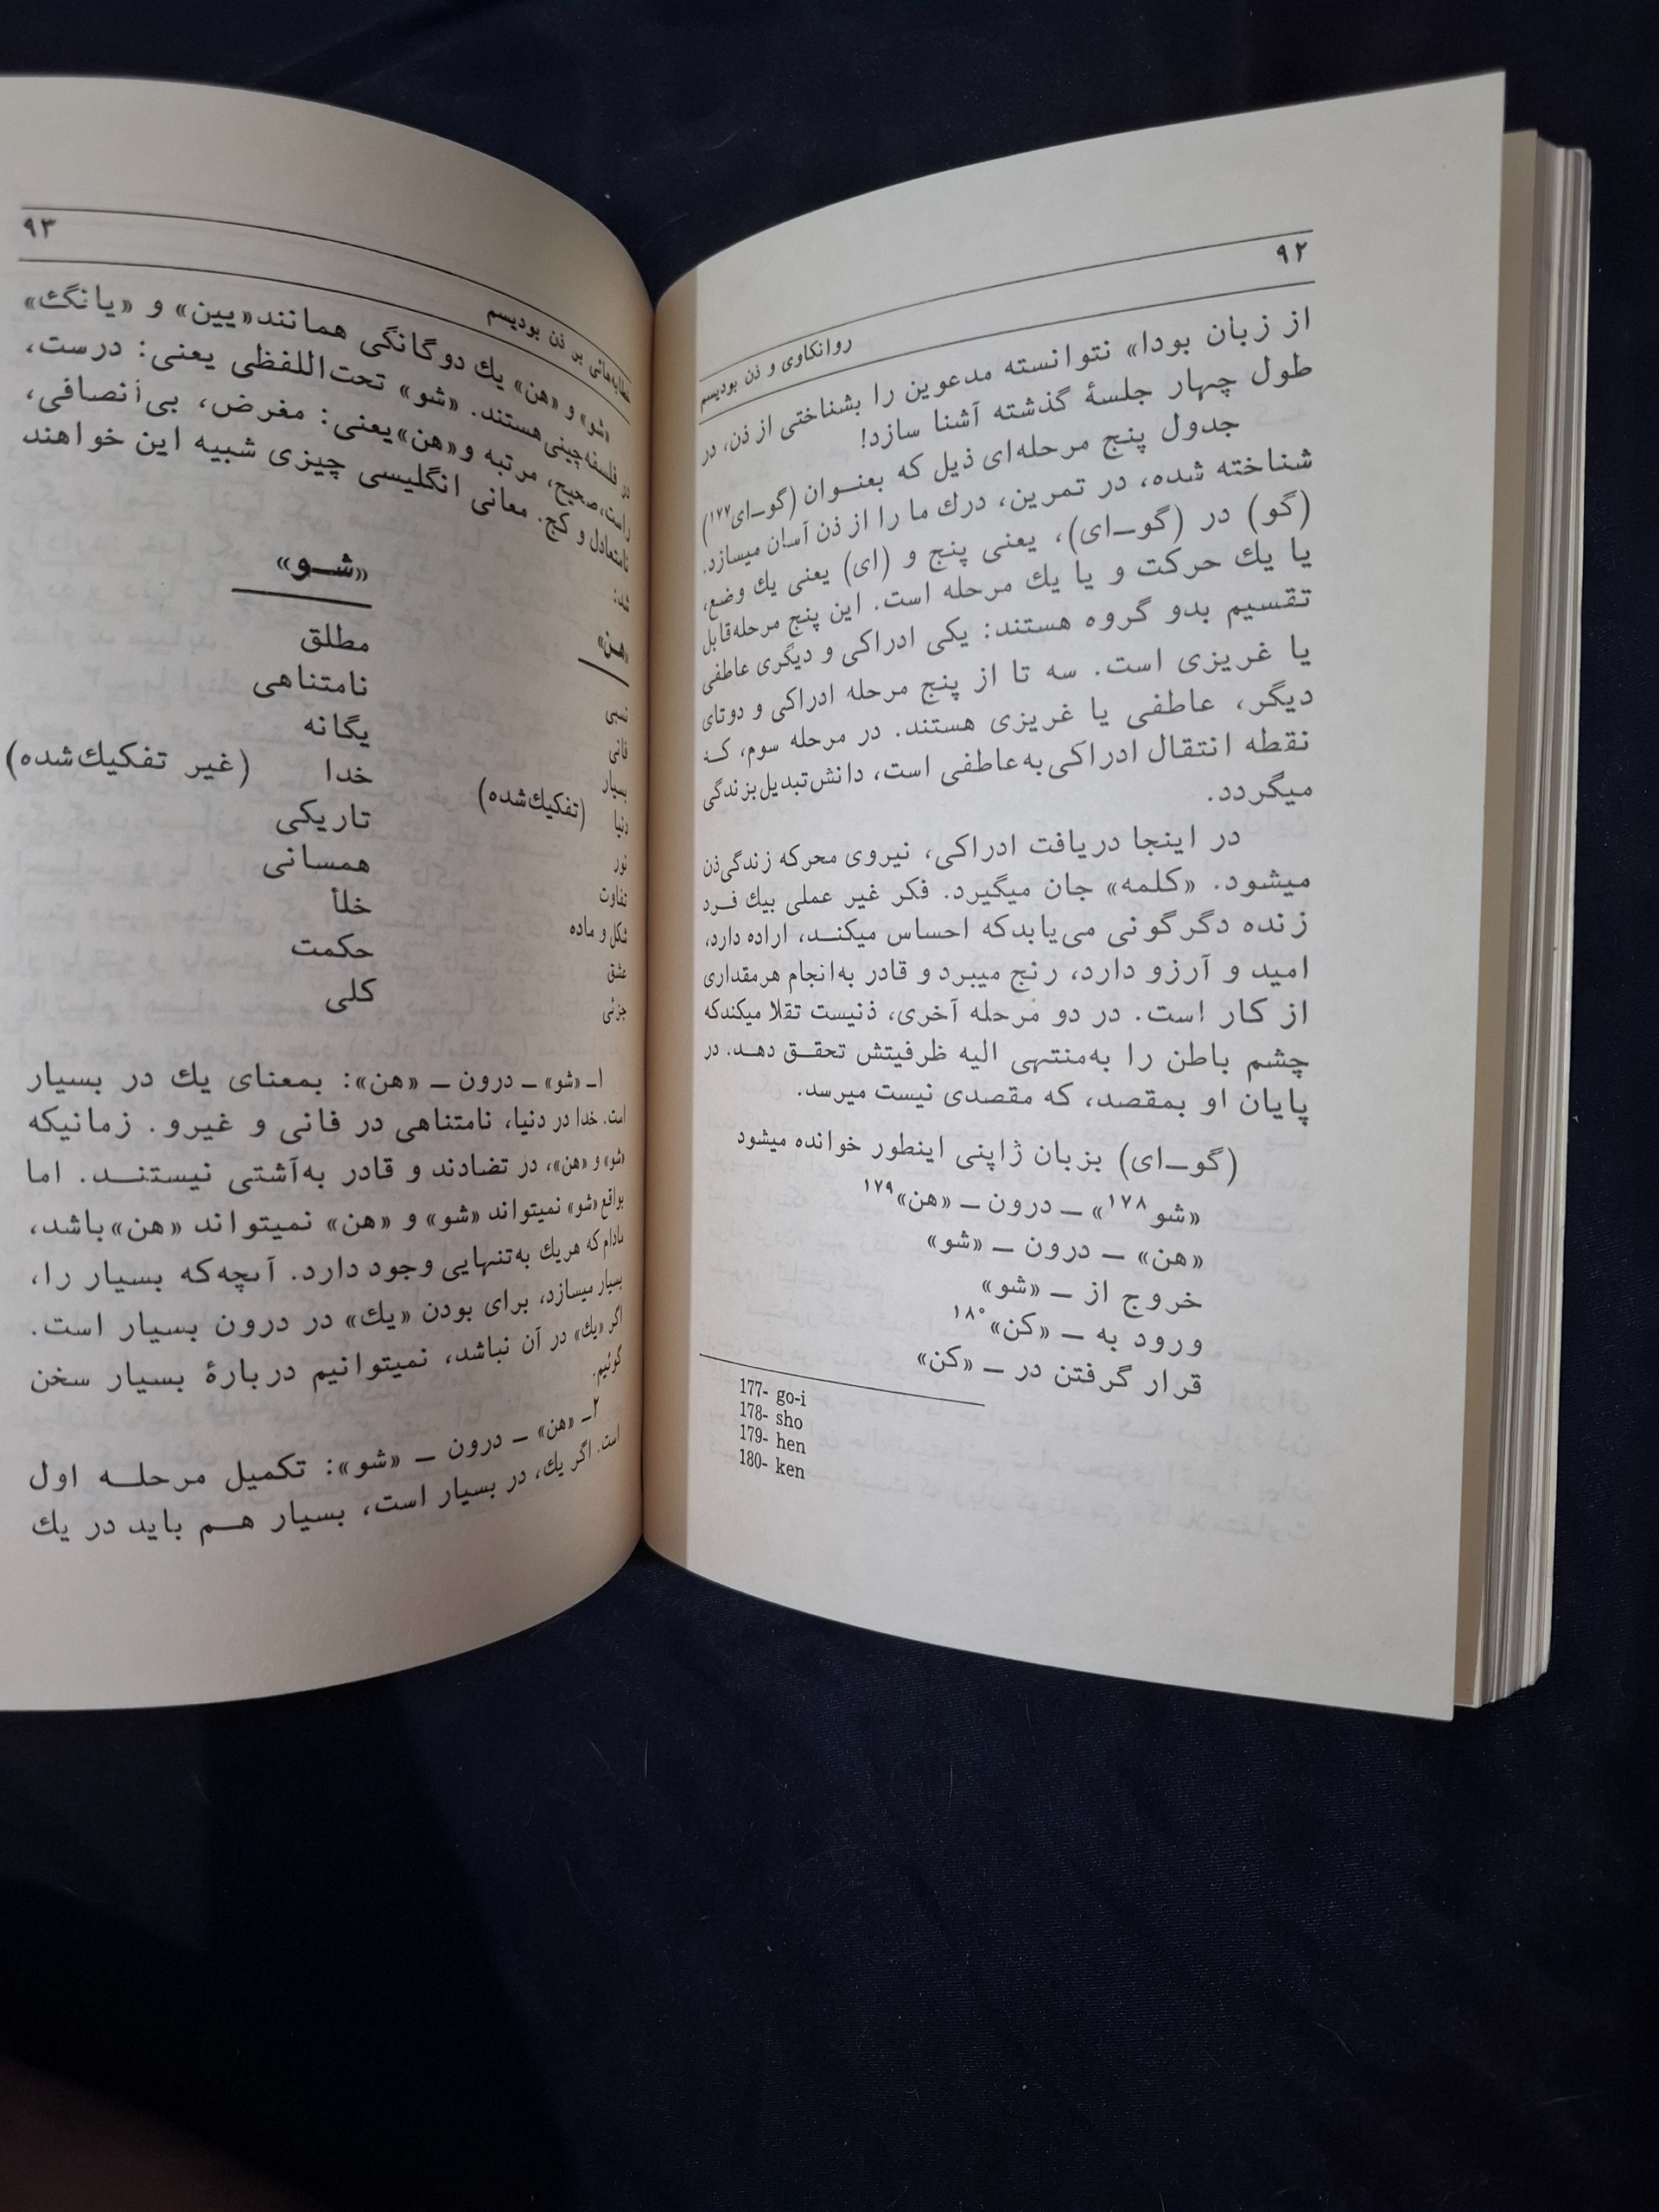 ۹۲
روانکاوی و ذن بودیسم
از زبان بودا» نتوانسته مدعوین را بشناختی از ذن، در
طول چهار جلسهٔ گذشته آشنا سازد!
جدول پنج مرحله‌ای ذیل که بعنـوان (گو-ای۱۷۷)
شناخته شده، در تمرین، درك ما را از ذن آسان میسازد.
(گو) در (گو-ای)، یعنی پنج و (ای) یعنی يك وضع،
یا يك حرکت و یا يك مرحله است. این پنج مرحله قابل
تقسیم بدو گروه هستند: یکی ادراکی و دیگری عاطفی
یا غریزی است. سه تا از پنج مرحله ادراکی و دوتای
دیگر، عاطفی یا غریزی هستند. در مرحله سوم، کـه
نقطه انتقال ادراکی به عاطفی است، دانش تبدیل بزندگی
میگردد.
در اینجا دریافت ادراکی، نیروی محرکه زندگی ذن
میشود. «کلمه» جان میگیرد. فکر غیر عملی بیك فـرد
زنده دگرگونی می‌یابد که احساس میکنـد، اراده دارد،
امید و آرزو دارد، رنج میبرد و قادر به انجام هر مقداری
از کار است. در دو مرحله آخری، ذنیست تقلا میکند که
چشم باطن را به‌منتهی الیه ظرفیتش تحقـق دهـد. در
پایان او بمقصد، که مقصدی نیست میرسد.
(گو-ای) بزبان ژاپنی اینطور خوانده میشود
«شو۱۷۸» - درون - «هن»۱۷۹
«هن» - درون - «شو»
خروج از - «شو»
ورود به - «کن»۱۸۰
قرار گرفتن در - «کن»
177- go-i
178- sho
179- hen
180- ken
خطابه‌هائی بر ذن بودیسم
۹۳
«شو» و «هن» يك دوگانگی همانند «یین» و «یانگ»
در فلسفه چینی هستند. «شو» تحت‌اللفظی یعنی: درست،
راست، صحیح، مرتبه و «هن» یعنی: مغرض، بی‌انصافی،
نامتعادل و کج. معانی انگلیسی چیزی شبیه این خواهند
شد:
«هن» «شـو»
نسبی مطلق
فانی نامتناهی
بسیار یگانه
دنیا (تفکیك‌شده) خدا (غیر تفکیك‌شده)
نور تاریکی
تفاوت همسانی
شکل و ماده خلأ
عشق حکمت
جزئی کلی
۱- «شو» - درون - «هن»: بمعنای يك در بسیار
است. خدا در دنیا، نامتناهی در فانی و غیرو. زمانیکه
«شو» و «هن»، در تضادند و قادر به‌آشتی نیستنـد. اما
بواقع «شو» نمیتواند «شو» و «هن» نمیتواند «هن» باشد،
مادام که هريك به‌تنهایی وجود دارد. آنچه‌که بسیار را،
بسیار میسازد، برای بودن «يك» در درون بسیار است.
اگر «يك» در آن نباشد، نمیتوانیم دربارهٔ بسیار سخن
گوئیم.
۲- «هن» - درون - «شو»: تکمیل مرحلـه اول
است. اگر يك، در بسیار است، بسیار هـم باید در يك